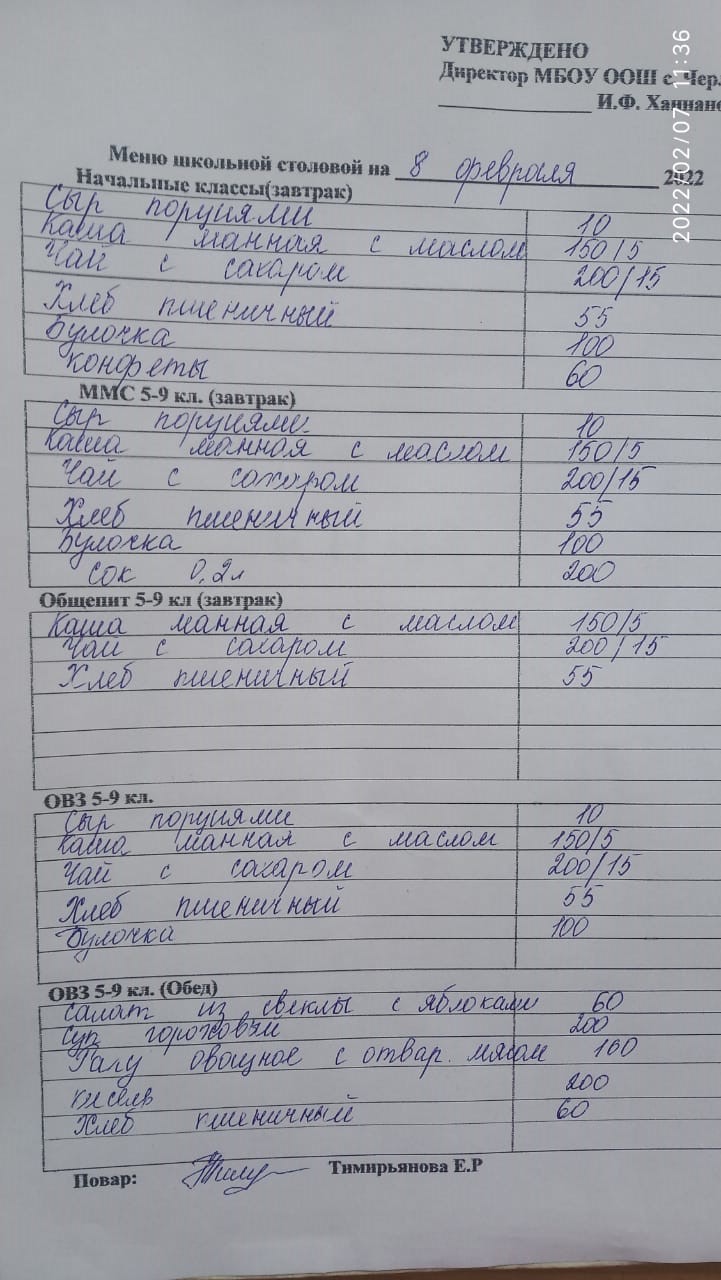 УТВЕРЖДЕНО
Директор МБОУ ООШ с. Чер.
И.Ф. Ханнано
2022/02/07 11:36
Меню школьной столовой на 8 февраля 2022
Начальные классы(завтрак)
Сыр порциями 10
Каша манная с маслом 150/5
Чай с сахаром 200/15
Хлеб пшеничный 55
Булочка 100
конфеты 60
ММС 5-9 кл. (завтрак)
Сыр порциями 10
Каша манная с маслом 150/5
Чай с сахаром 200/15
Хлеб пшеничный 55
Булочка 100
сок 0,2л 200
Общепит 5-9 кл (завтрак)
Каша манная с маслом 150/5
Чай с сахаром 200/15
Хлеб пшеничный 55
ОВЗ 5-9 кл.
Сыр порциями 10
Каша манная с маслом 150/5
Чай с сахаром 200/15
Хлеб пшеничный 55
Булочка 100
ОВЗ 5-9 кл. (Обед)
Салат из свеклы с яблоками 60
Суп гороховый 200
Рагу овощное с отвар. мясом 160
кисель 200
Хлеб пшеничный 60
Повар: Тимирьянова Е.Р